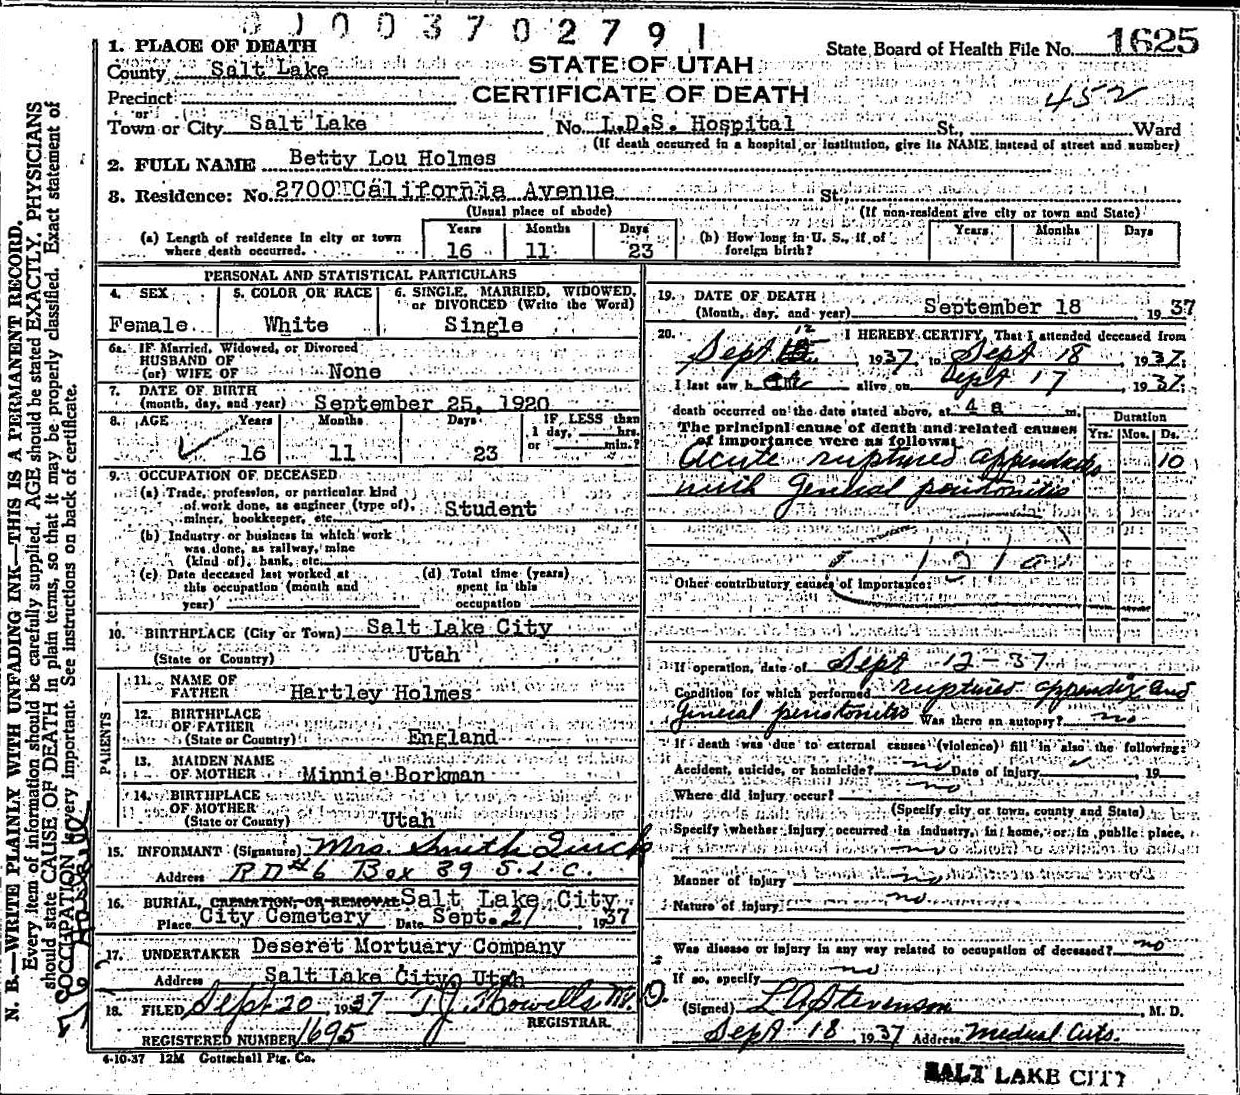 0 1 0 0 3 7 0 2 7 9 1
State Board of Health File No. 1625
1. PLACE OF DEATH
County Salt Lake
STATE OF UTAH
Precinct
CERTIFICATE OF DEATH
452
"or"
Town or City Salt Lake No. L.D.S. Hospital St., Ward
(If death occurred in a hospital or institution, give its NAME instead of street and number)
2. FULL NAME Betty Lou Holmes
3. Residence: No. 2700 California Avenue St.
(Usual place of abode) (If non-resident give city or town and State)
(a) Length of residence in city or town where death occurred. Years 16 Months 11 Days 23
(b) How long in U. S., if of foreign birth? Years Months Days
PERSONAL AND STATISTICAL PARTICULARS
4. SEX Female
5. COLOR OR RACE White
6. SINGLE, MARRIED, WIDOWED, or DIVORCED (Write the Word) Single
6a. IF Married, Widowed, or Divorced
HUSBAND OF
(or) WIFE OF None
7. DATE OF BIRTH
(month, day, and year) September 25, 1920
8. AGE Years 16 Months 11 Days 23
IF LESS than 1 day, hrs. or min.?
9. OCCUPATION OF DECEASED
(a) Trade, profession, or particular kind
of work done, as engineer (type of),
miner, bookkeeper, etc. Student
(b) Industry or business in which work
was done, as railway, mine
(kind of), bank, etc.
(c) Date deceased last worked at
this occupation (month and
year)
(d) Total time (years)
spent in this
occupation
10. BIRTHPLACE (City or Town) Salt Lake City
(State or Country) Utah
PARENTS
11. NAME OF
FATHER Hartley Holmes
12. BIRTHPLACE
OF FATHER
(State or Country) England
13. MAIDEN NAME
OF MOTHER Minnie Borkman
14. BIRTHPLACE
OF MOTHER
(State or Country) Utah
15. INFORMANT (Signature) Mrs. Smith
Address R D #6 Box 89 S.L.C.
16. BURIAL, CREMATION, OR REMOVAL Salt Lake City
Place City Cemetery Date Sept. 21, 1937
17. UNDERTAKER Deseret Mortuary Company
Address Salt Lake City, Utah
18. FILED Sept 20 1937 T J Howells M.D.
REGISTRAR.
REGISTERED NUMBER 1695
19. DATE OF DEATH
(Month, day, and year) September 18 1937
20. I HEREBY CERTIFY, That I attended deceased from
Sept 12 1937 to Sept 18, 1937.
I last saw her alive on Sept 17, 1937.
death occurred on the date stated above, at 4 a m.
Duration
The principal cause of death and related causes
of importance were as follows:
Yrs. Mos. Ds.
Acute ruptured appendicitis 10
with General peritonitis
Other contributory causes of importance:
If operation, date of Sept 12-37
Condition for which performed ruptured appendix and
General peritonitis Was there an autopsy? no
If death was due to external causes (violence) fill in also the following:
Accident, suicide, or homicide? no Date of injury 19
Where did injury occur? no
(Specify city or town, county and State)
Specify whether injury occurred in industry, in home, or in public place,
no
Manner of injury no
Nature of injury no
Was disease or injury in any way related to occupation of deceased? no
If so, specify no
(Signed) L A Stevenson, M. D.
Sept 18, 1937 Address Medical Arts.
4-10-37 12M Gottschall Ptg. Co.
SALT LAKE CITY
N. B.—WRITE PLAINLY WITH UNFADING INK—THIS IS A PERMANENT RECORD.
Every item of information should be carefully supplied. AGE should be stated EXACTLY. PHYSICIANS
should state CAUSE OF DEATH in plain terms, so that it may be properly classified. Exact statement of
OCCUPATION is very important. See instructions on back of certificate.